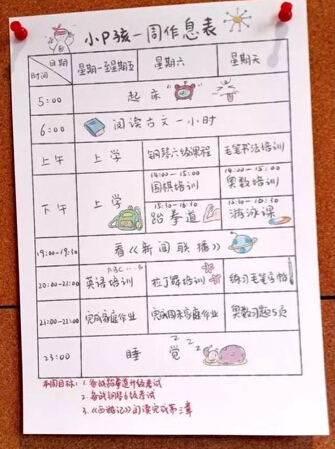 小P孩一周作息表
日期
时间
星期一至星期五
星期六
星期天
5:00
起床
6:00
阅读古文一小时
上午
上学
钢琴六级课程
毛笔书法培训
下午
上学
14:00-15:00
围棋培训
15:10-16:50
跆拳道
14:00-15:00
奥数培训
游泳课
19:00-19:30
看《新闻联播》
20:00-21:00
ABC...
英语培训
拉丁舞培训
练习毛笔字帖
21:00-22:00
完成家庭作业
完成周末家庭作业
奥数习题5页
23:00
睡觉
ZZZ
本周目标:1.备战跆拳道升级考试
2.备战钢琴6级考试
3.《西游记》阅读完成第三章